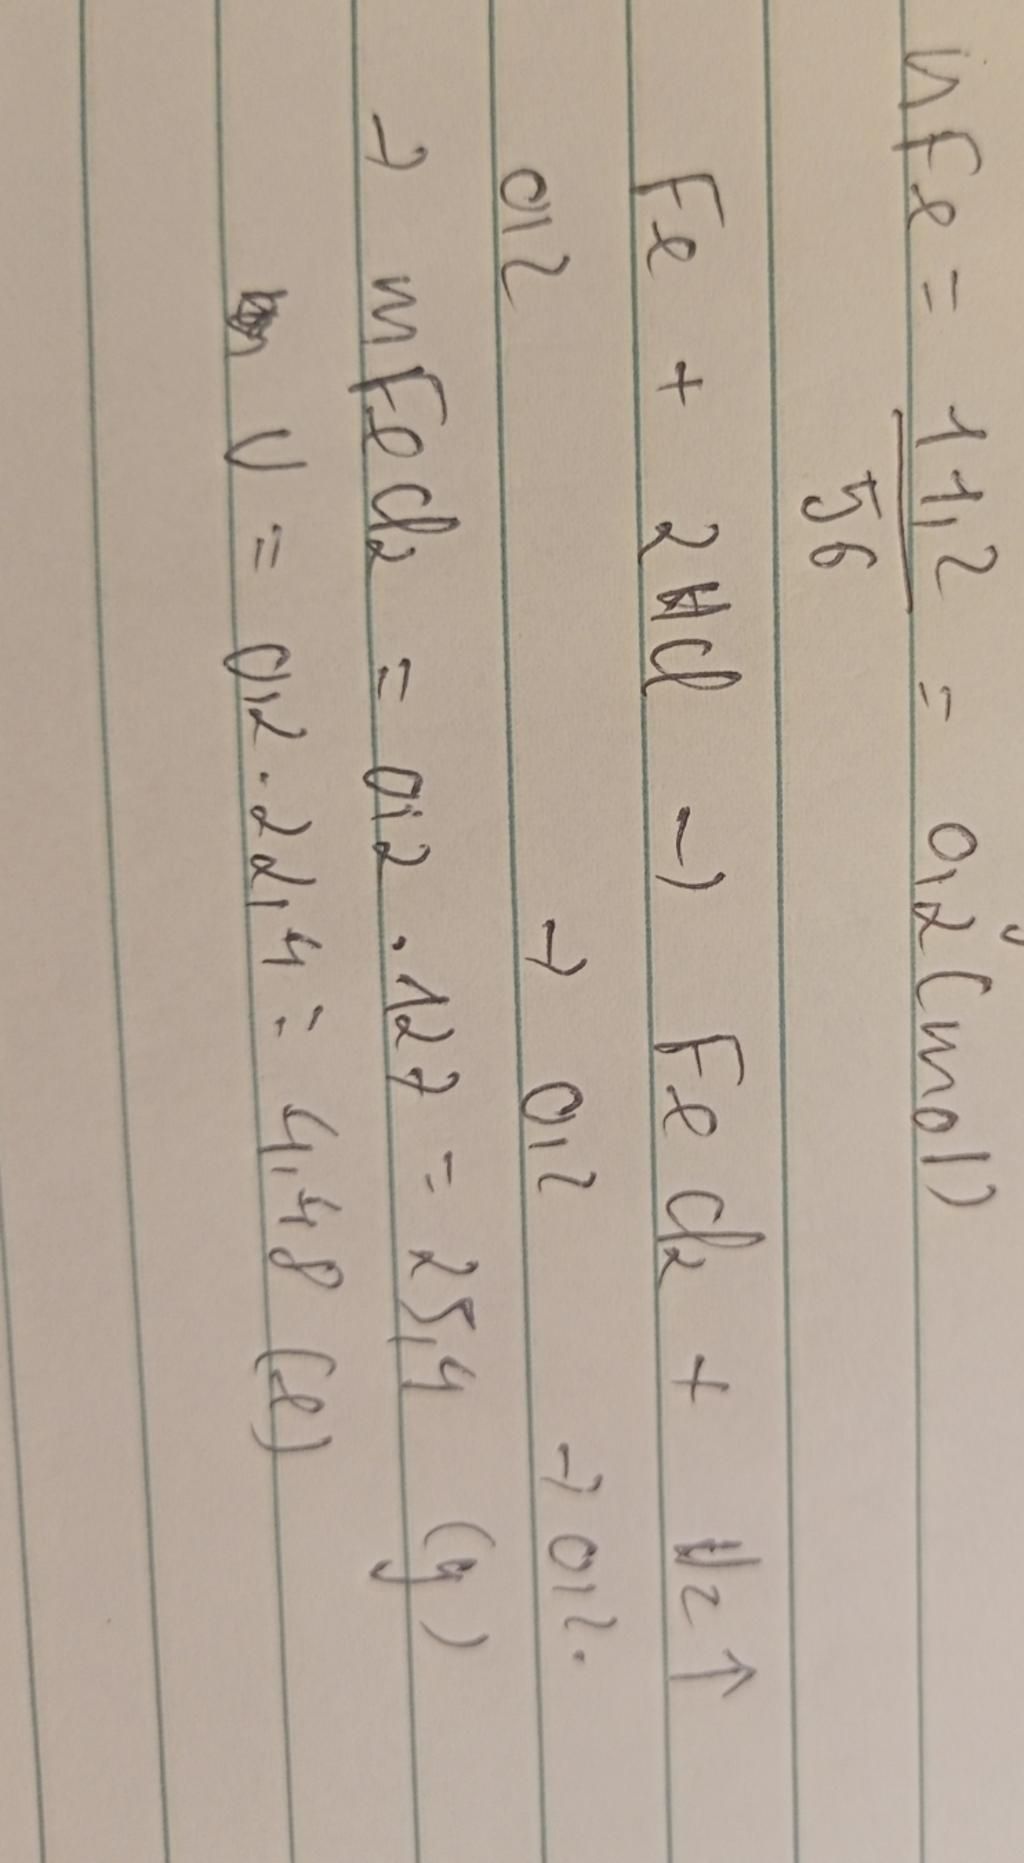 nFe = 11,2 / 56 = 0,2 (mol)
Fe + 2HCl → FeCl2 + H2 ↑
0,2 → 0,2 → 0,2.
→ mFeCl2 = 0,2 . 127 = 25,4 (g)
V = 0,2 . 22,4 = 4,48 (l)